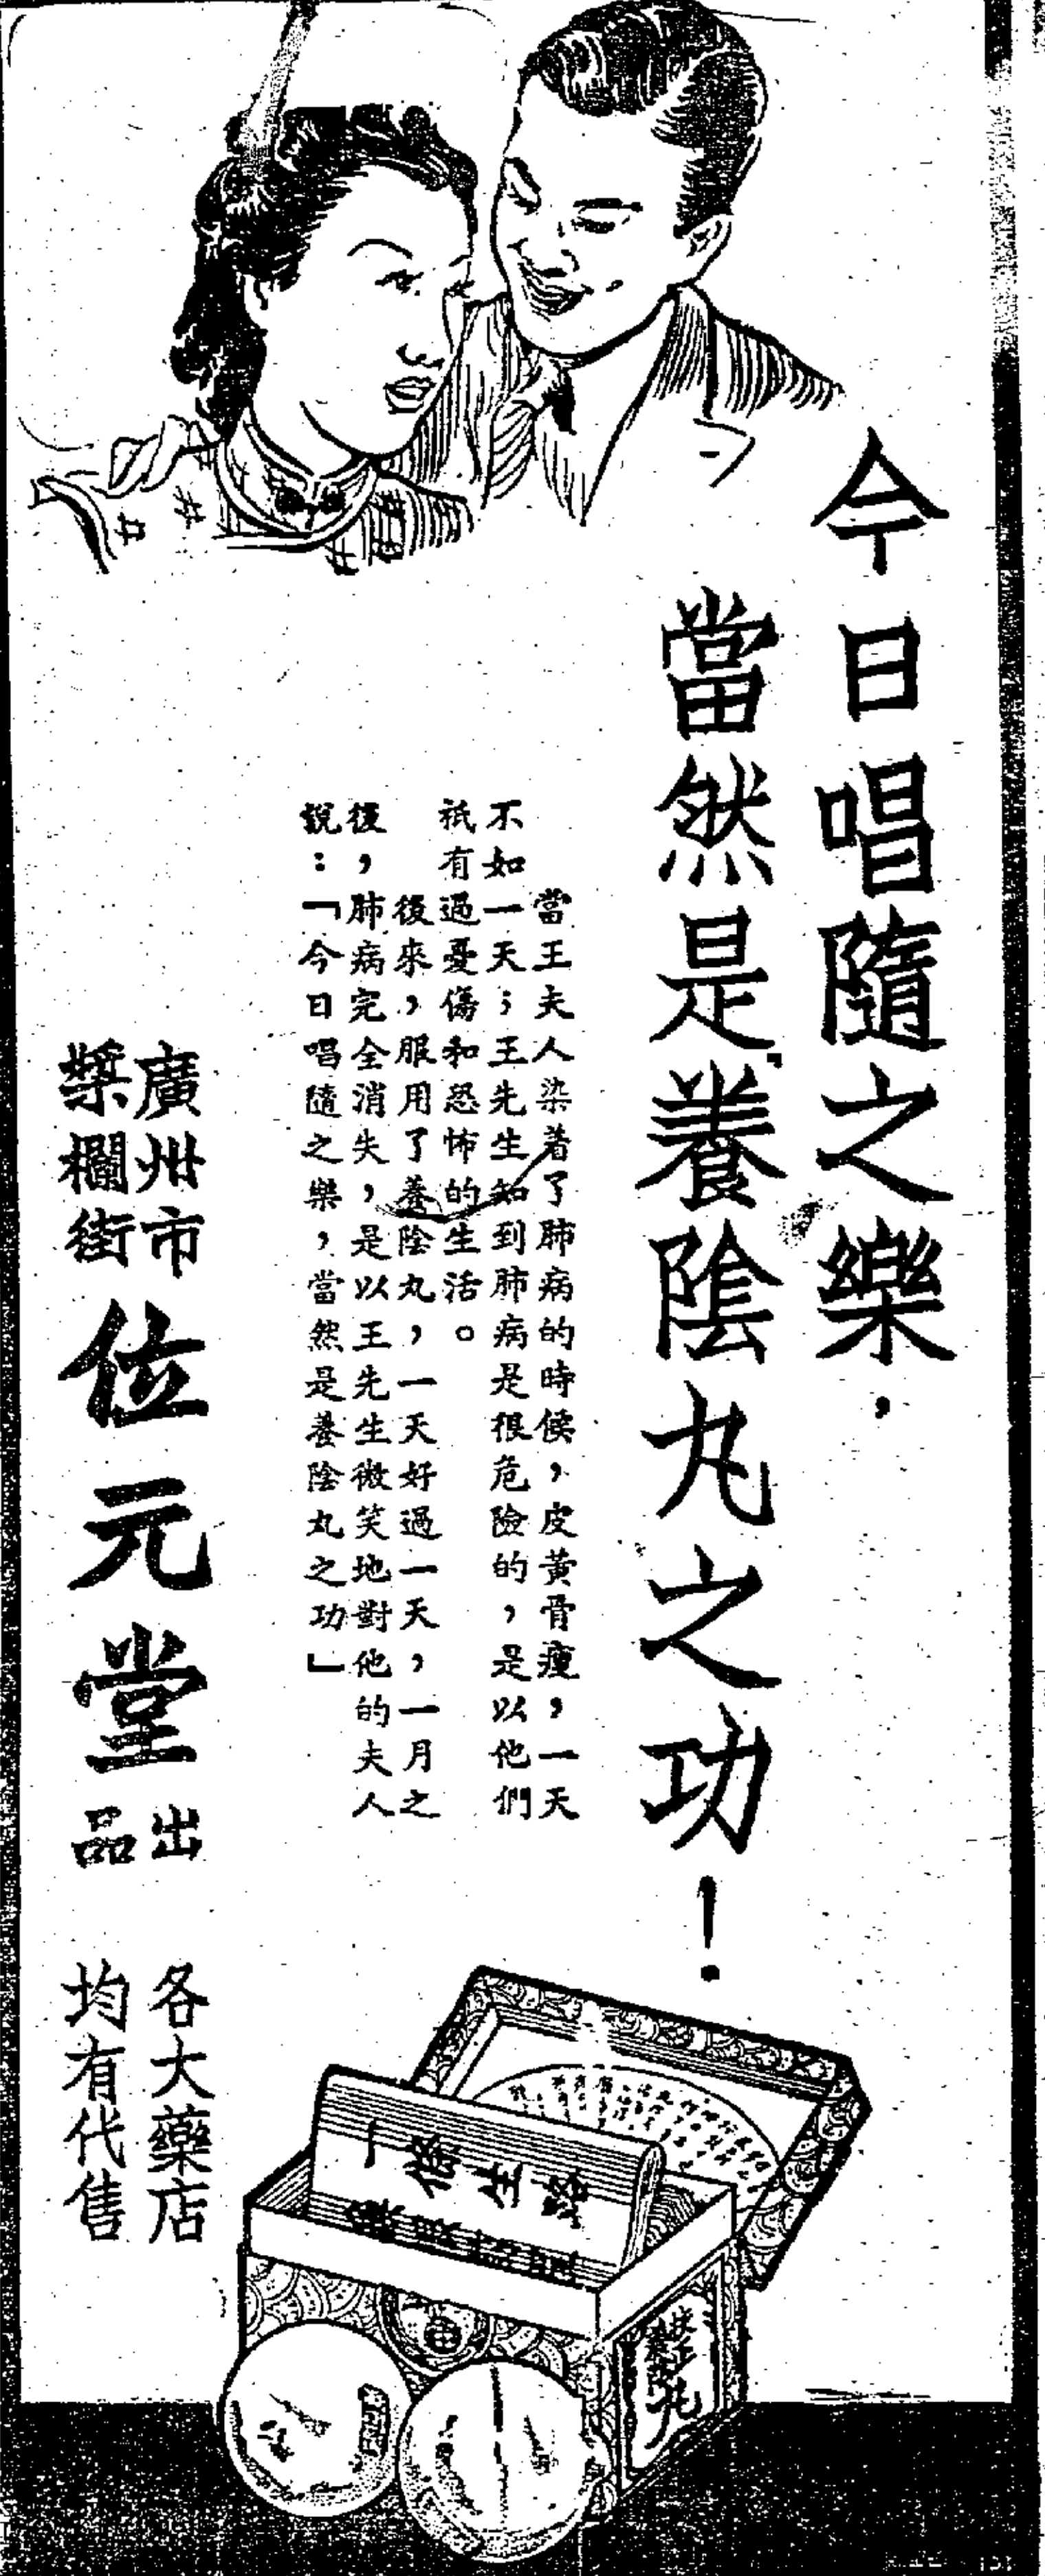 今日唱隨之樂，
當然是養陰丸之功！
當王夫人染着了肺病的時候，皮黃骨瘦，一天
不如一天；王先生知到肺病是很危險的，是以他們
祇有過憂傷和恐怖的生活。
後來，服用了養陰丸，一天好過一天，一月之
後，肺病完全消失，是以王先生微笑地對他的夫人
說：「今日唱隨之樂，當然是養陰丸之功」
廣州市
槳欄街
位元堂
出品
各大藥店
均有代售